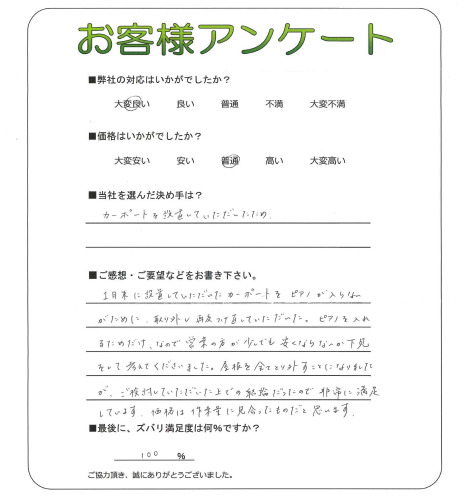 お客様アンケート
■弊社の対応はいかがでしたか？
大変良い 良い 普通 不満 大変不満
■価格はいかがでしたか？
大変安い 安い 普通 高い 大変高い
■当社を選んだ決め手は？
カーポートを設置していただいたため.
■ご感想・ご要望などをお書き下さい。
1月末に設置していただいたカーポートを ピアノが入らない
がために、取り外し 再度つけ直していただいた。ピアノを入れ
るためだけ、なので 営業の方が 少しでも 安くならないか 下見
をして 考えてくださいました。屋根を全てとり外すことになりました
が、ご検討していただいた上での結論だったので 非常に満足
しています. 価格は作業量に見合ったものだと思います.
■最後に、ズバリ満足度は何%ですか？
100 %
ご協力頂き、誠にありがとうございました。